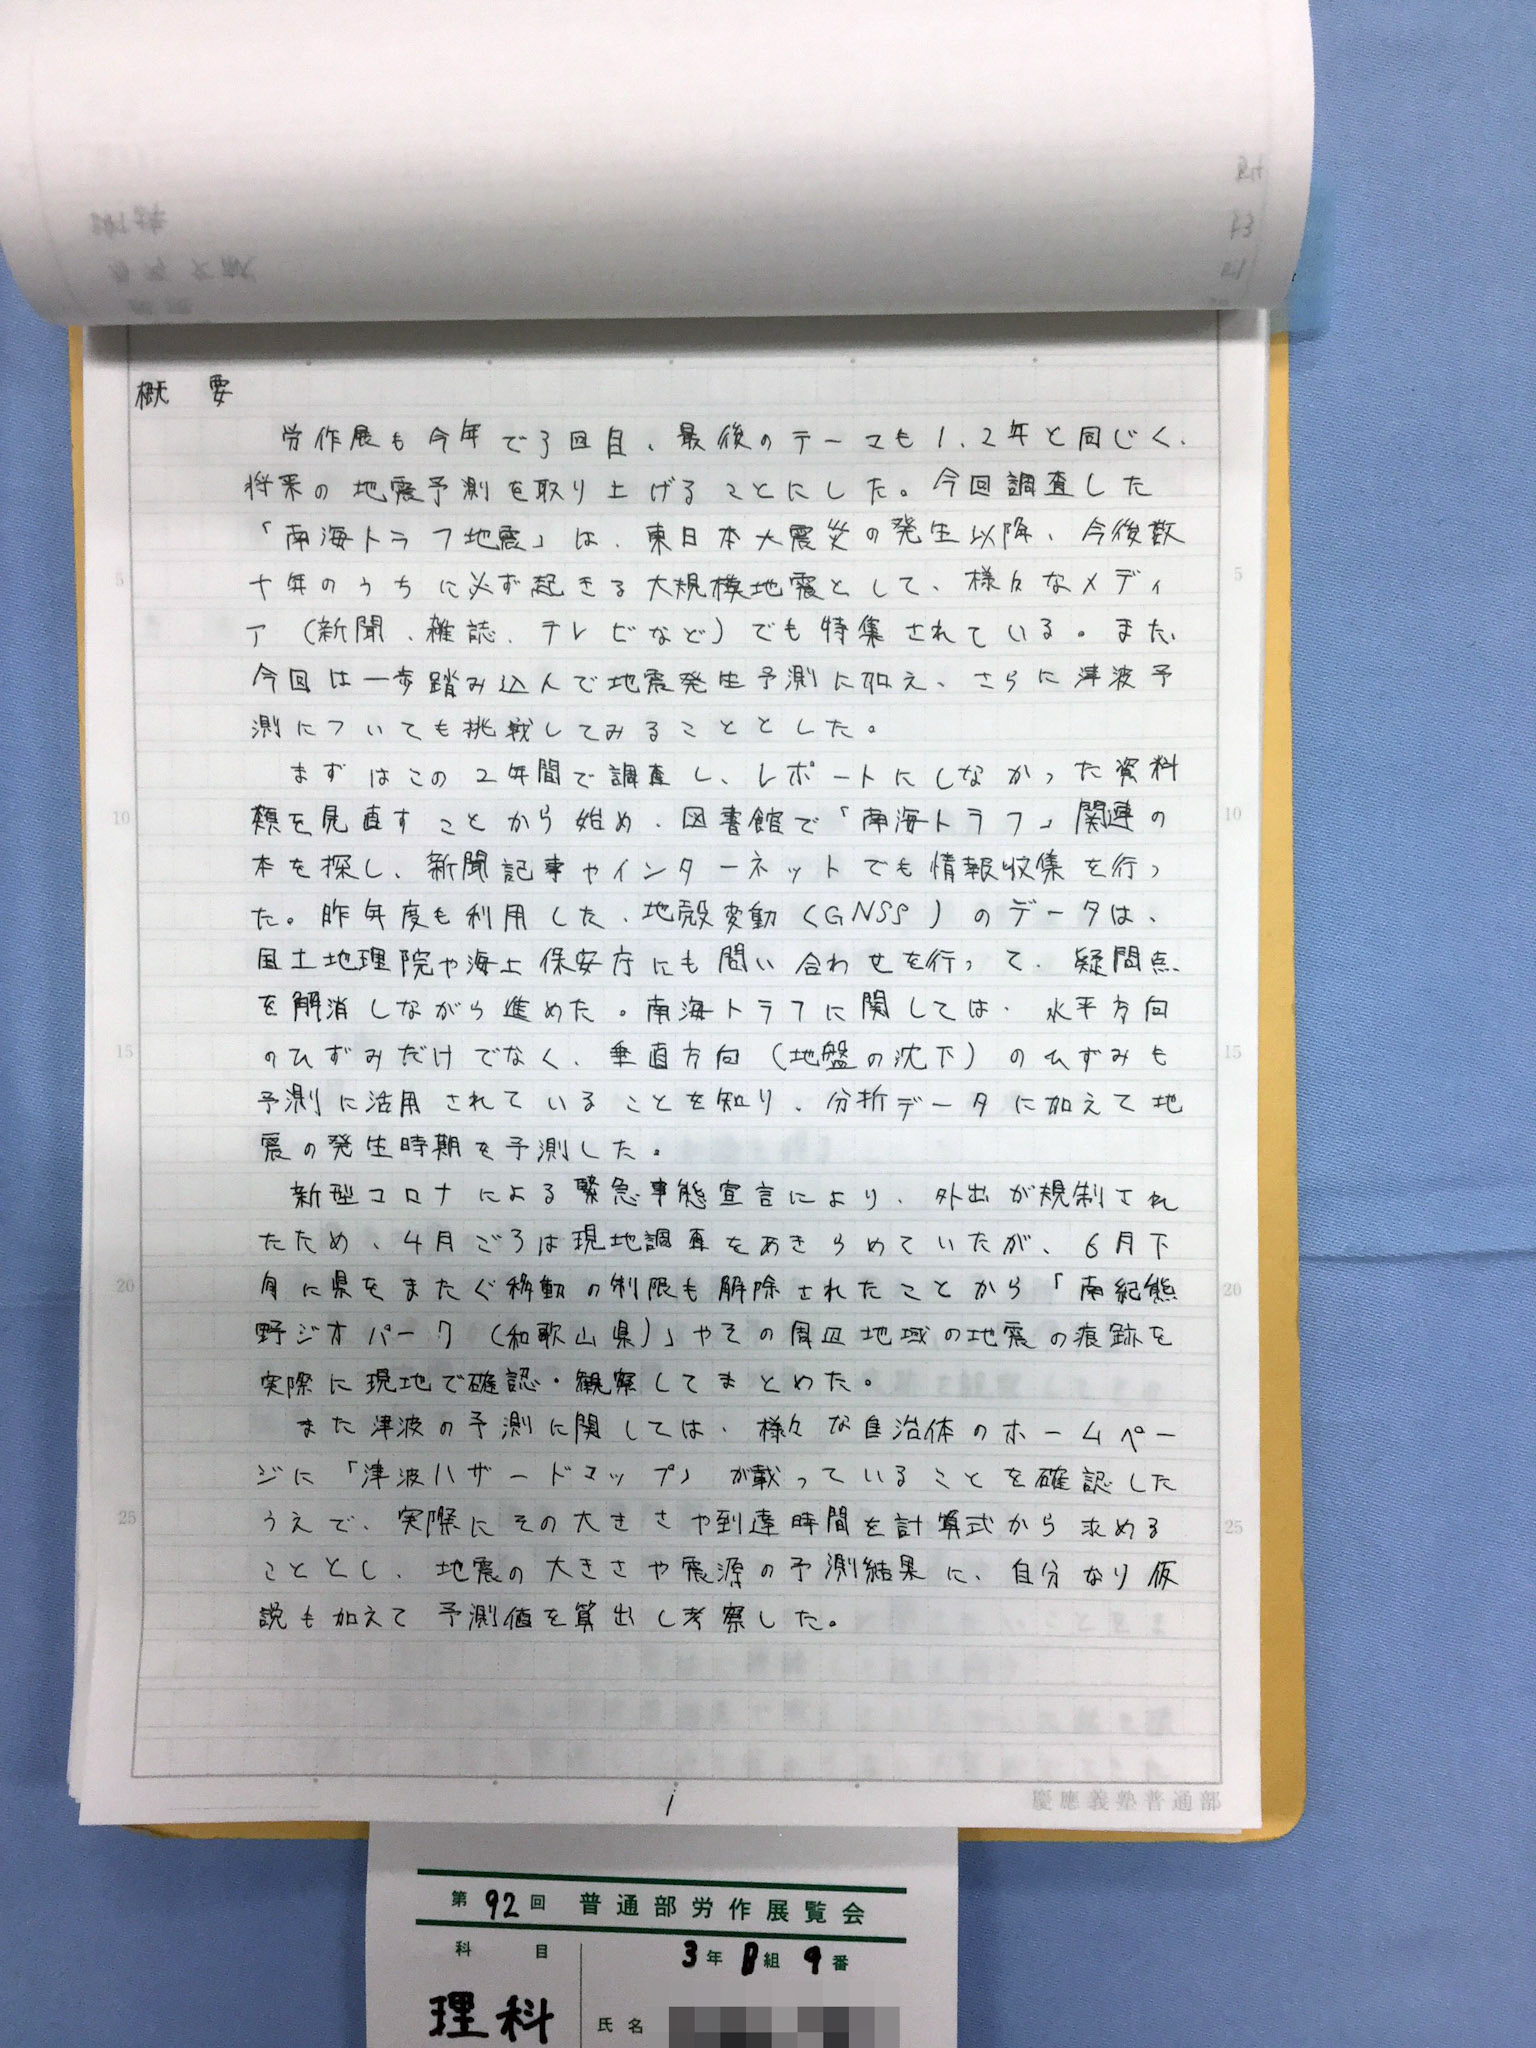 概要
労作展も今年で3回目、最後のテーマも1、2年と同じく、
将来の地震予測を取り上げることにした。今回調査した
「南海トラフ地震」は、東日本大震災の発生以降、今後数
十年のうちに必ず起きる大規模地震として、様々なメディ
ア(新聞、雑誌、テレビなど)でも特集されている。また、
今回は一歩踏み込んで地震発生予測に加え、さらに津波予
測についても挑戦してみることとした。
まずはこの2年間で調査し、レポートにしなかった資料
類を見直すことから始め、図書館で「南海トラフ」関連の
本を探し、新聞記事やインターネットでも情報収集を行っ
た。昨年度も利用した、地殻変動(GNSS)のデータは、
国土地理院や海上保安庁にも問い合わせを行って、疑問点
を解消しながら進めた。南海トラフに関しては、水平方向
のひずみだけでなく、垂直方向(地盤の沈下)のひずみも
予測に活用されていることを知り、分析データに加えて地
震の発生時期を予測した。
新型コロナによる緊急事態宣言により、外出が規制され
たため、4月ごろは現地調査をあきらめていたが、6月下
旬に県をまたぐ移動の制限も解除されたことから「南紀熊
野ジオパーク(和歌山県)」やその周辺地域の地震の痕跡を
実際に現地で確認・観察してまとめた。
また津波の予測に関しては、様々な自治体のホームペー
ジに「津波ハザードマップ」が載っていることを確認した
うえで、実際にその大きさや到達時間を計算式から求める
こととし、地震の大きさや震源の予測結果に、自分なり仮
説も加えて予測値を算出し考察した。
5
10
15
20
25
5
10
15
20
25
1
慶應義塾普通部
第92回 普通部労作展覧会
科目
3年B組9番
理科
氏名